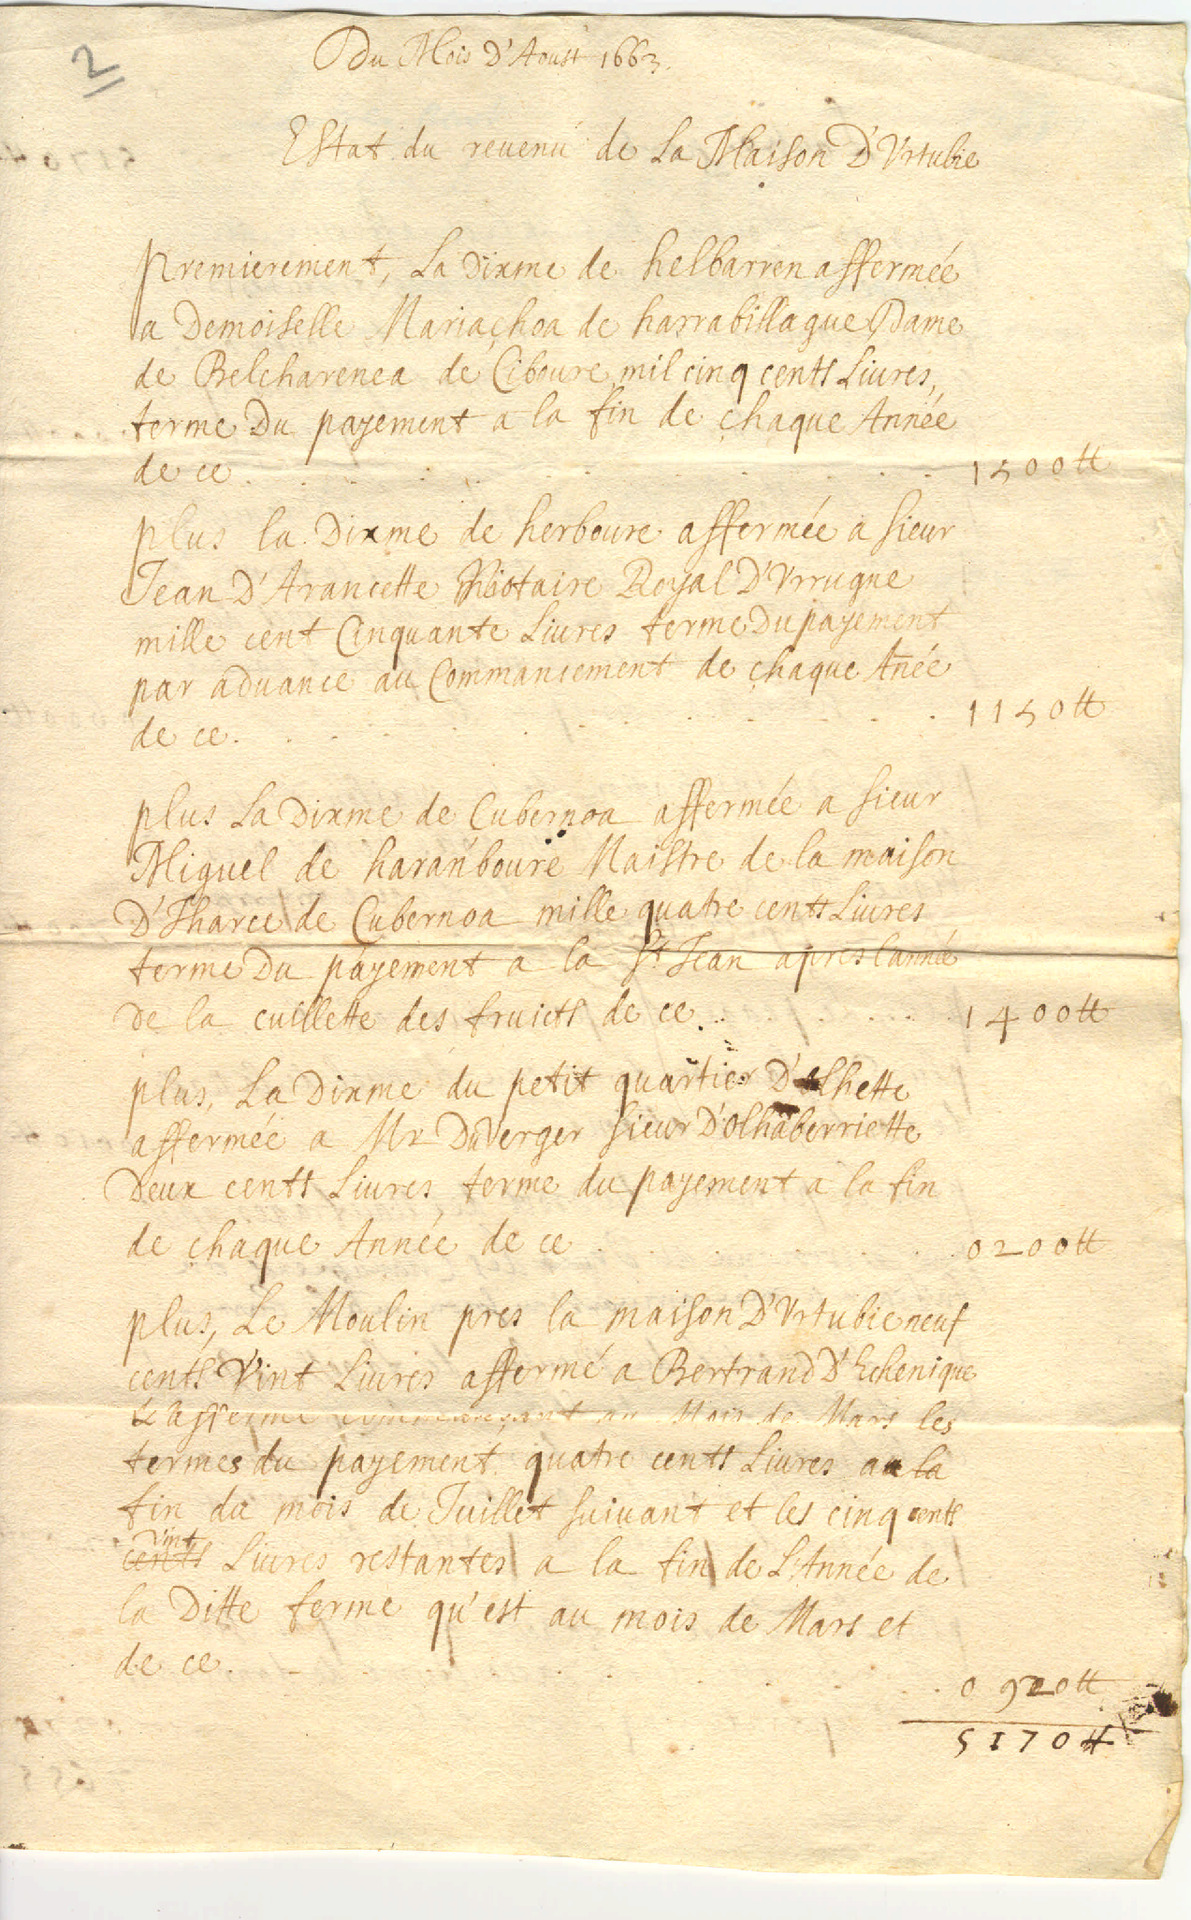 2
Du Mois D'Aoust 1663.
Estat du reuenu de La Maison D'Vrtubie
premierement, La Dixme de helbarren affermée
a Demoiselle Mariachoa de harrabillague Dame
de Belcharenea de Ciboure mil cinq cents Liures,
terme Du payement a la fin de chaque Année
de ce . . . . . . . . . 1500 tt
plus la Dixme de herboure affermée a sieur
Jean D'Arancette Notaire Royal D'Vrrugne
mille cent Cinquante Liures terme Du payement
par aduance au Commancement de chaque Anée
de ce . . . . . . . . . 1150 tt
plus La Dixme de Cubernoa affermée a sieur
Miguel de haranboure Maistre de la maison
D'Tharce de Cubernoa mille quatre cents Liures
terme Du payement a la St Jean apres l'année
De la cuillette des fruicts de ce . . . . . 1400 tt
plus, La Dixme du petit quartier D'olhette
affermée a Mr Duverger sieur D'Olhaberriette
Deux cents Liures terme du payement a la fin
de chaque Année de ce . . . . . . 0200 tt
plus, Le Moulin pres la maison D'Vrtubie neuf
cents Vint Liures affermé a Bertrand D'Echenique
& afferme commençant au Mois de Mars les
termes du payement quatre cents Liures a la
fin du mois de Juillet suiuant et les cinq cents
vint
cents Liures restantes a la fin de L'Année de
la Ditte ferme qu'est au mois de Mars et
de ce . . . . . . . . 0920 tt
5170 tt